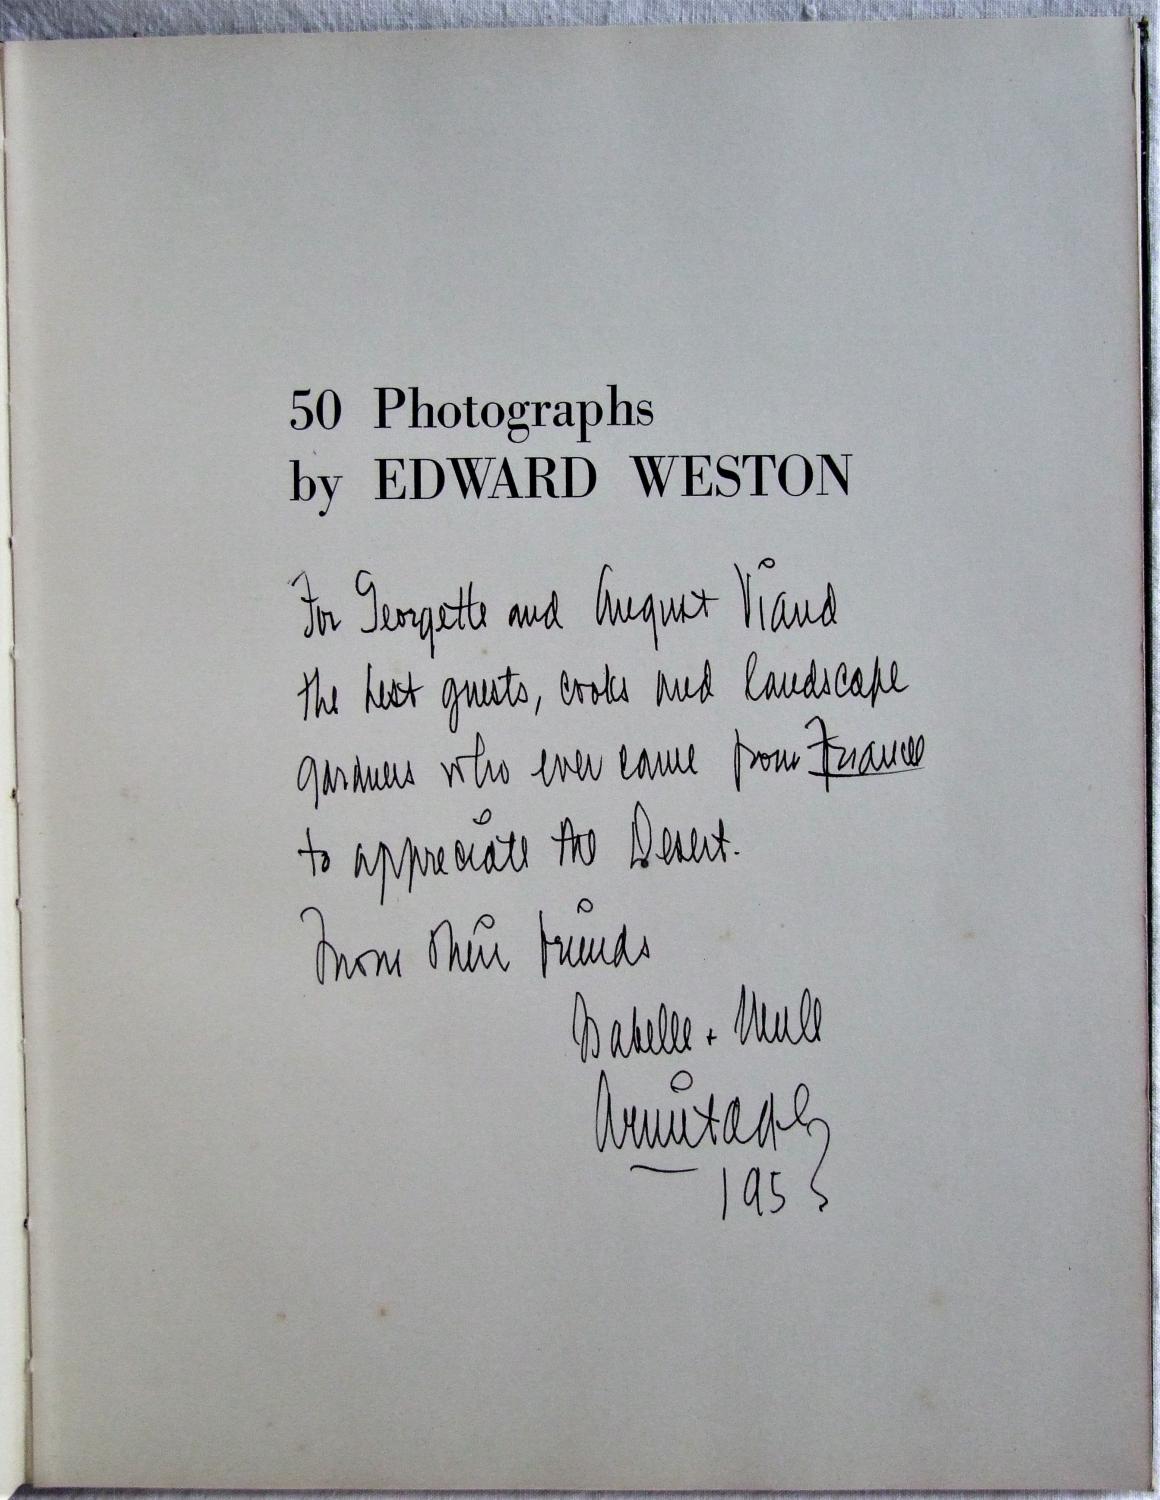 50 Photographs
by EDWARD WESTON
For Georgette and August Viaud
the best guests, cooks and landscape
gardners who ever came from France
to appreciate the Desert.
From their friends
Isabelle + Merle
Armitage
1953